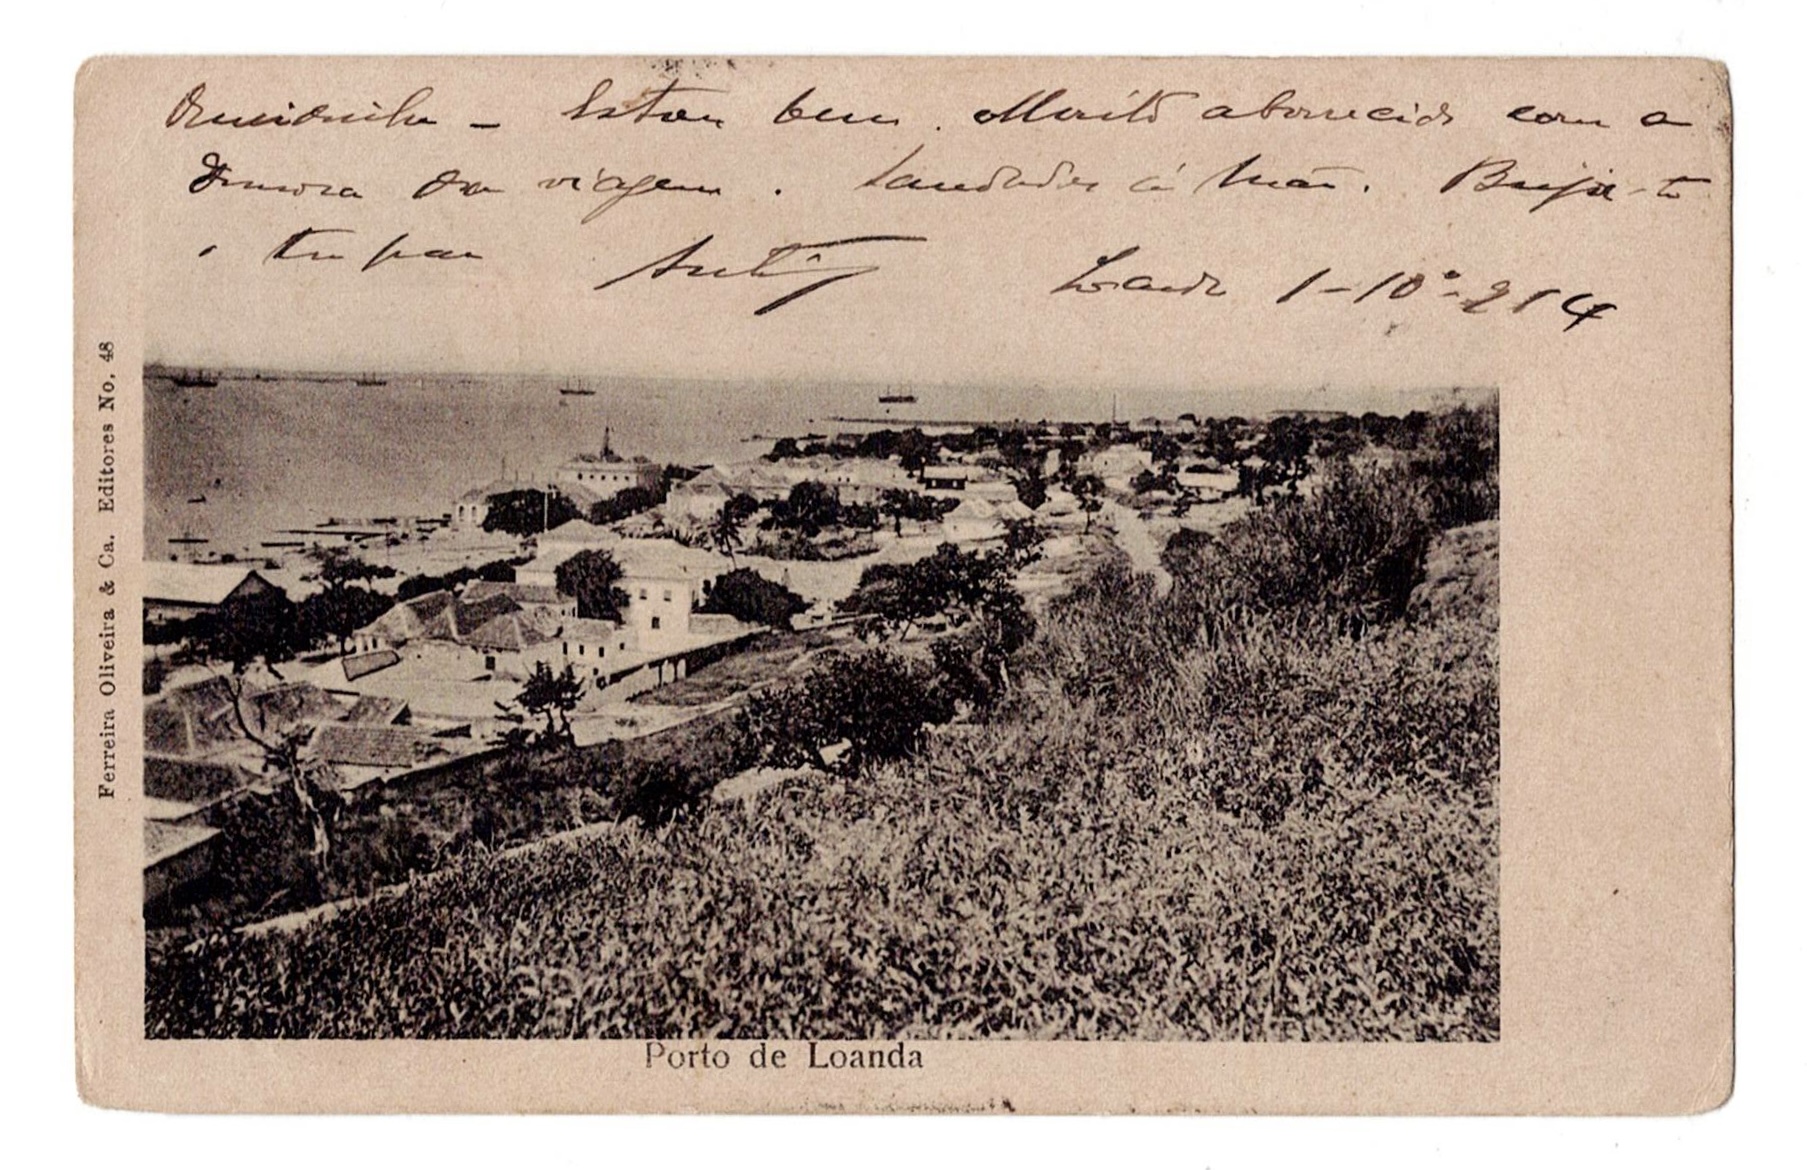 Estou bem. Muito aborrecido com a
demora da viagem. Saudades á Mãe. Beija-te
o teu pae Loanda 1-10º-914
Ferreira Oliveira & Ca. Editores No. 48
Porto de Loanda